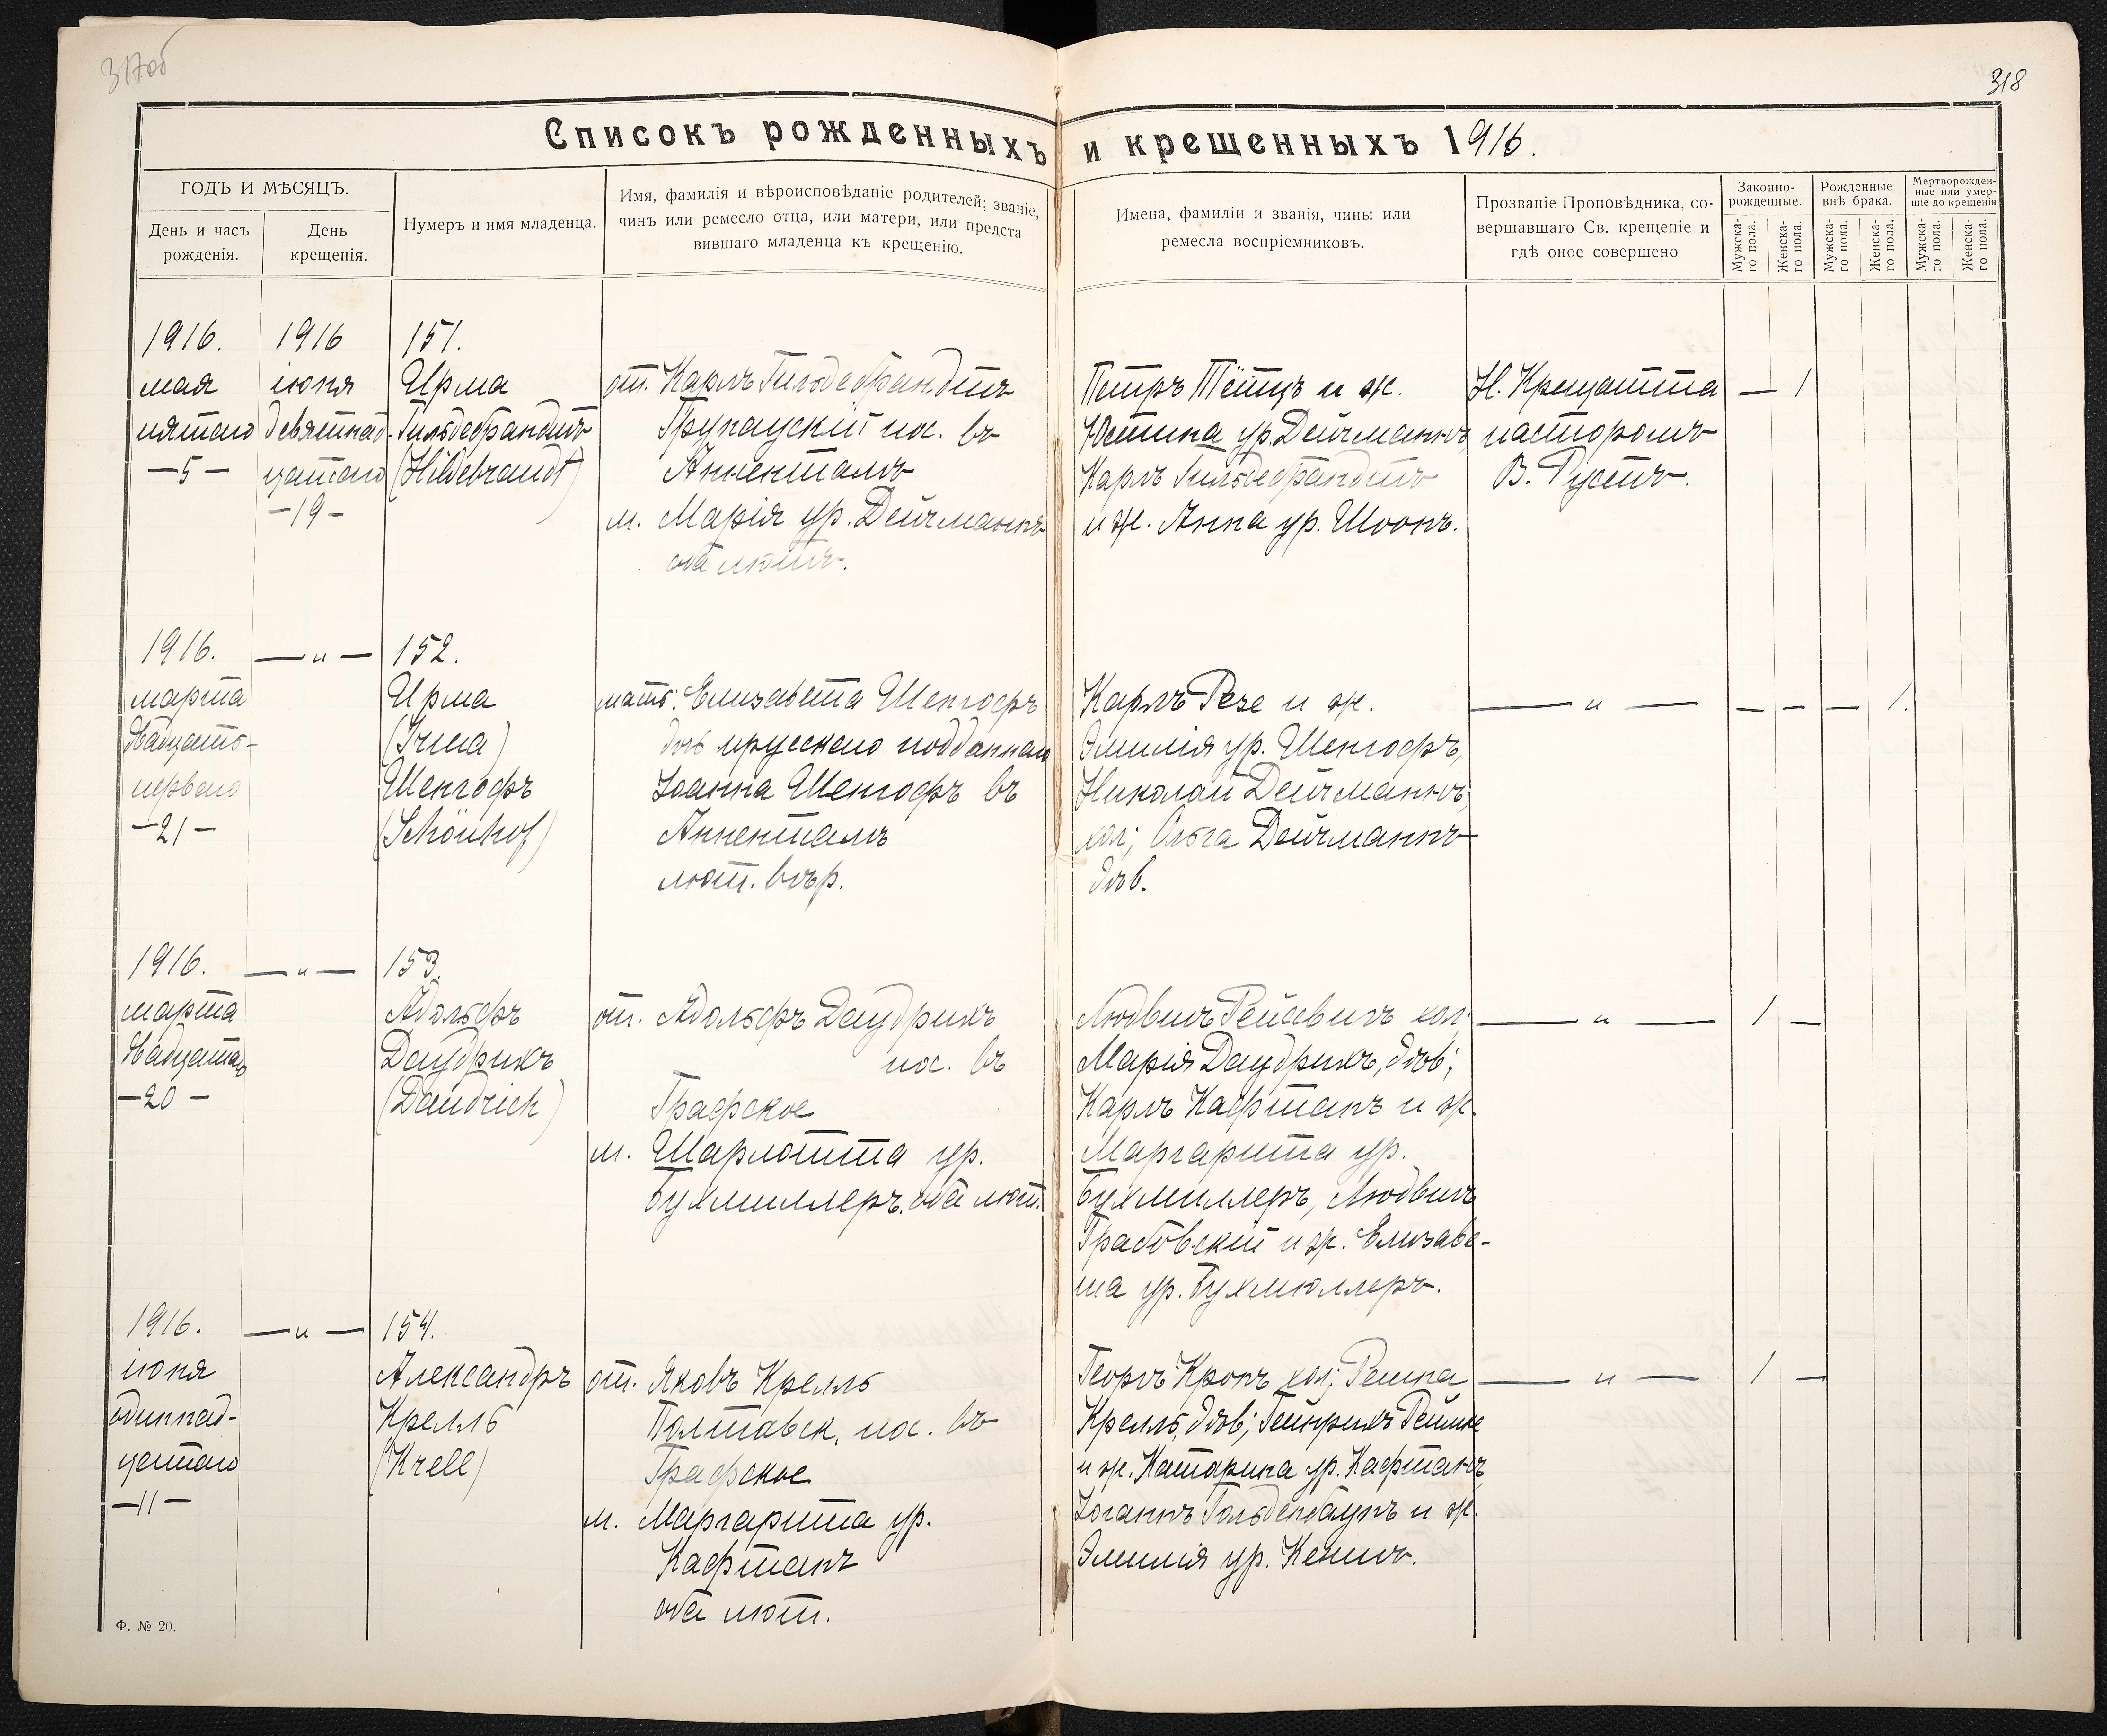 317об
318
Списокъ рожденныхъ и крещенныхъ 1916.
ГОДЪ И МѢСЯЦЪ.
День и часъ
рожденія.
День
крещенія.
Нумеръ и имя младенца.
Имя, фамилія и вѣроисповѣданіе родителей; званіе,
чинъ или ремесло отца, или матери, или предста-
вившаго младенца къ крещенію.
Имена, фамиліи и званія, чины или
ремесла воспріемниковъ.
Прозваніе Проповѣдника, со-
вершавшаго Св. крещеніе и
гдѣ оное совершено
Законно-
рожденные.
Рожденные
внѣ брака.
Мертворожден-
ные или умер-
шіе до крещенія
Мужска-
го пола.
Женска-
го пола.
Мужска-
го пола.
Женска-
го пола.
Мужска-
го пола.
Женска-
го пола.
1916.
мая
пятаго
—5—
1916
іюня
девятнад-
цатаго
—19—
151.
Ирма
Гильдебрандтъ
(Hildebrandt)
от. Карлъ Гильдебрандтъ
пос. въ
Анненталъ
м. Марія ур. Дейчманнъ
оба лют.
Петръ Тётцъ и ж.
Юстина ур. Дейчманнъ,
Карлъ Гильдебрандтъ
и ж. Анна ур. Шоонъ.
Н. Крещатта
пасторомъ
В. Рустъ.
— 1
1916.
марта
двадцать-
перваго
—21—
— „ —
152.
Ирма
(Irma)
Шенгофъ
(Schönhof)
мать: Елизавета Шенгофъ
дочь прусскаго подданнаго
Іоанна Шенгофъ въ
Анненталъ
лют. вѣр.
Карлъ Резе и ж.
Эмилія ур. Шенгофъ,
Николай Дейчманнъ,
хол; Ольга Дейчманнъ
дѣв.
— „ —
— — — 1.
1916.
марта
двадцатаго
—20—
— „ —
153.
Адольфъ
Даудрихъ
(Daudrich)
от. Адольфъ Даудрихъ
пос. въ
Графское
м. Шарлотта ур.
Бухмиллеръ. оба лют.
Людвигъ хол;
Марія Даудрихъ, дѣв;
Карлъ Кафтанъ и ж.
Маргарита ур.
Бухмиллеръ, Людвигъ
Грабовскій и ж. Елизаве-
та ур. Бухмюллеръ.
— „ —
1 —
1916.
іюня
одиннад-
цатаго
—11—
— „ —
154.
Александръ
Крелль
(Krell)
от. Яковъ Крелль
Полтавск. пос. въ
Графское
м. Маргарита ур.
Кафтанъ
оба лют.
Георгъ Кронъ хол;
Крелль, дѣв; Гейнрихъ
и ж. Катарина ур. Кафтанъ
Іоганнъ Гольденбаумъ и ж.
Эмилія ур. Кенигъ.
— „ —
1 —
Ф. № 20.